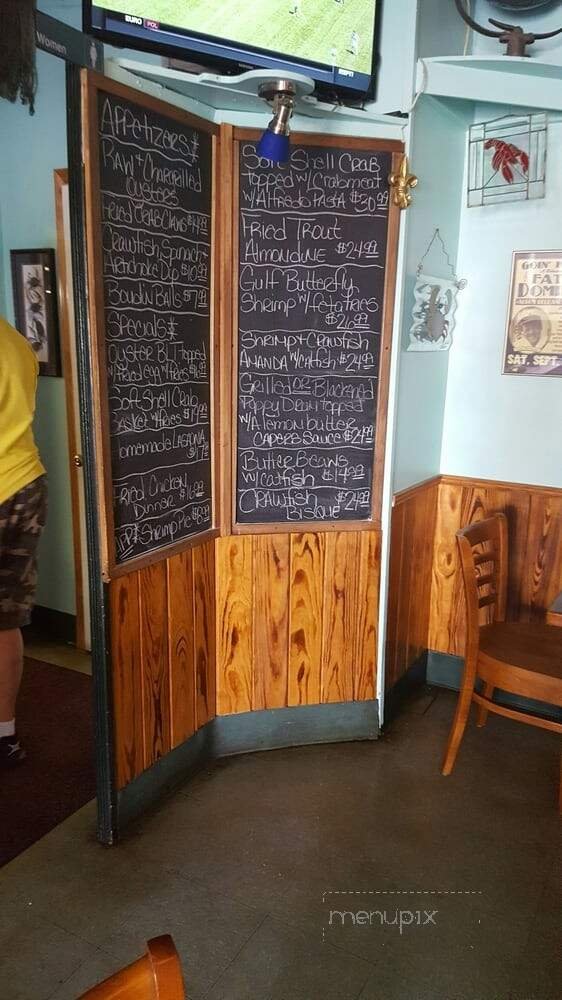 EURO POL
ESPN
SAMSUNG
Women
Appetizers
RAW + Chargrilled
OYSTERS
Fried CRAB CLAWS $14.99
Crawfish Spinach
Artichoke Dip $10.99
Boudin Balls $7.99
Specials
Oyster BLT topped
w/Fried egg w/Fries
Soft Shell Crab
Basket w/Fries
Homemade LASAGNA
Fried Chicken
Dinner $16.99
APP Shrimp Pie
Soft Shell CRAB
topped w/ Crabmeat
w/Alfredo PASTA $30.99
Fried Trout
Almondine $24.99
Gulf Butterfly
Shrimp w/ feta fries
$26.99
Shrimp + Crawfish
AMANDA w/CATfish $24.99
Grilled OR Blackened
Poppy Drum topped
w/A lemon butter
CAPERE SAUCE $24.99
Butter Beans
w/ CATfish $14.99
CRAWfish $24.99
BISQUE
GOIN'
FAT
DOMI
SAT, SEPT.
menupix